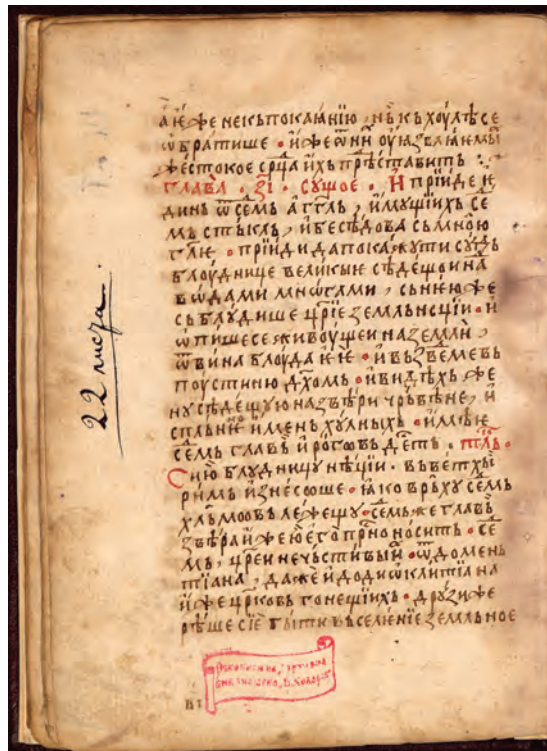 а҆ и҆же не къ покаꙗ҆нїю , нѣ къ хоулѣ се
ѡ҆братише • и҆же ѿ нѝ оу҆ꙗзвлꙗеми
жестокое срⷣца и҆хь прѣставить ⁘
глава • з҃і • сущое • И҆ прїиде є҆
динь ѿ семь а҆гг҃ль , и҆мущїихь се
мь стькль , и҆ бесѣдова сь мною
гл҃ѥ • прїиди да покажу ти судь
блоудницє великыѥ сѣдещои на
водами мнѡгами , сь нѥюже
сьблудише цр҃їе земльнсціи • и҆
ѡ҆пише се живоущеи на земли ,
ѿ вина блоуда ѥѥ • и҆ вьзвѣме вь
поустиню дх҃омь • и҆ видѣхь же
ну сѣдещую на звѣри чрьвѣне , и҆
спльнѥно имень хулныхь • и҆мѣѥ
семь главь и҆ рогѡвь десеть • тль •
Сию блудницу нѣціи • вь ветхы
римь и҆знесоше • ꙗ҆ко врьху семь
хльмоовь лежещу • семь же главь
звѣра и҆же ю҆ его прⷭ҇но носить • се
мь , цр҃еи нечьстивыи • ѿ домень
тїана , даже и҆ до диѡклитїана
и҆же цр҃ковь гонещїихь • друзи же
рѣше сїе быти вьселенїе земльное
22 листа.